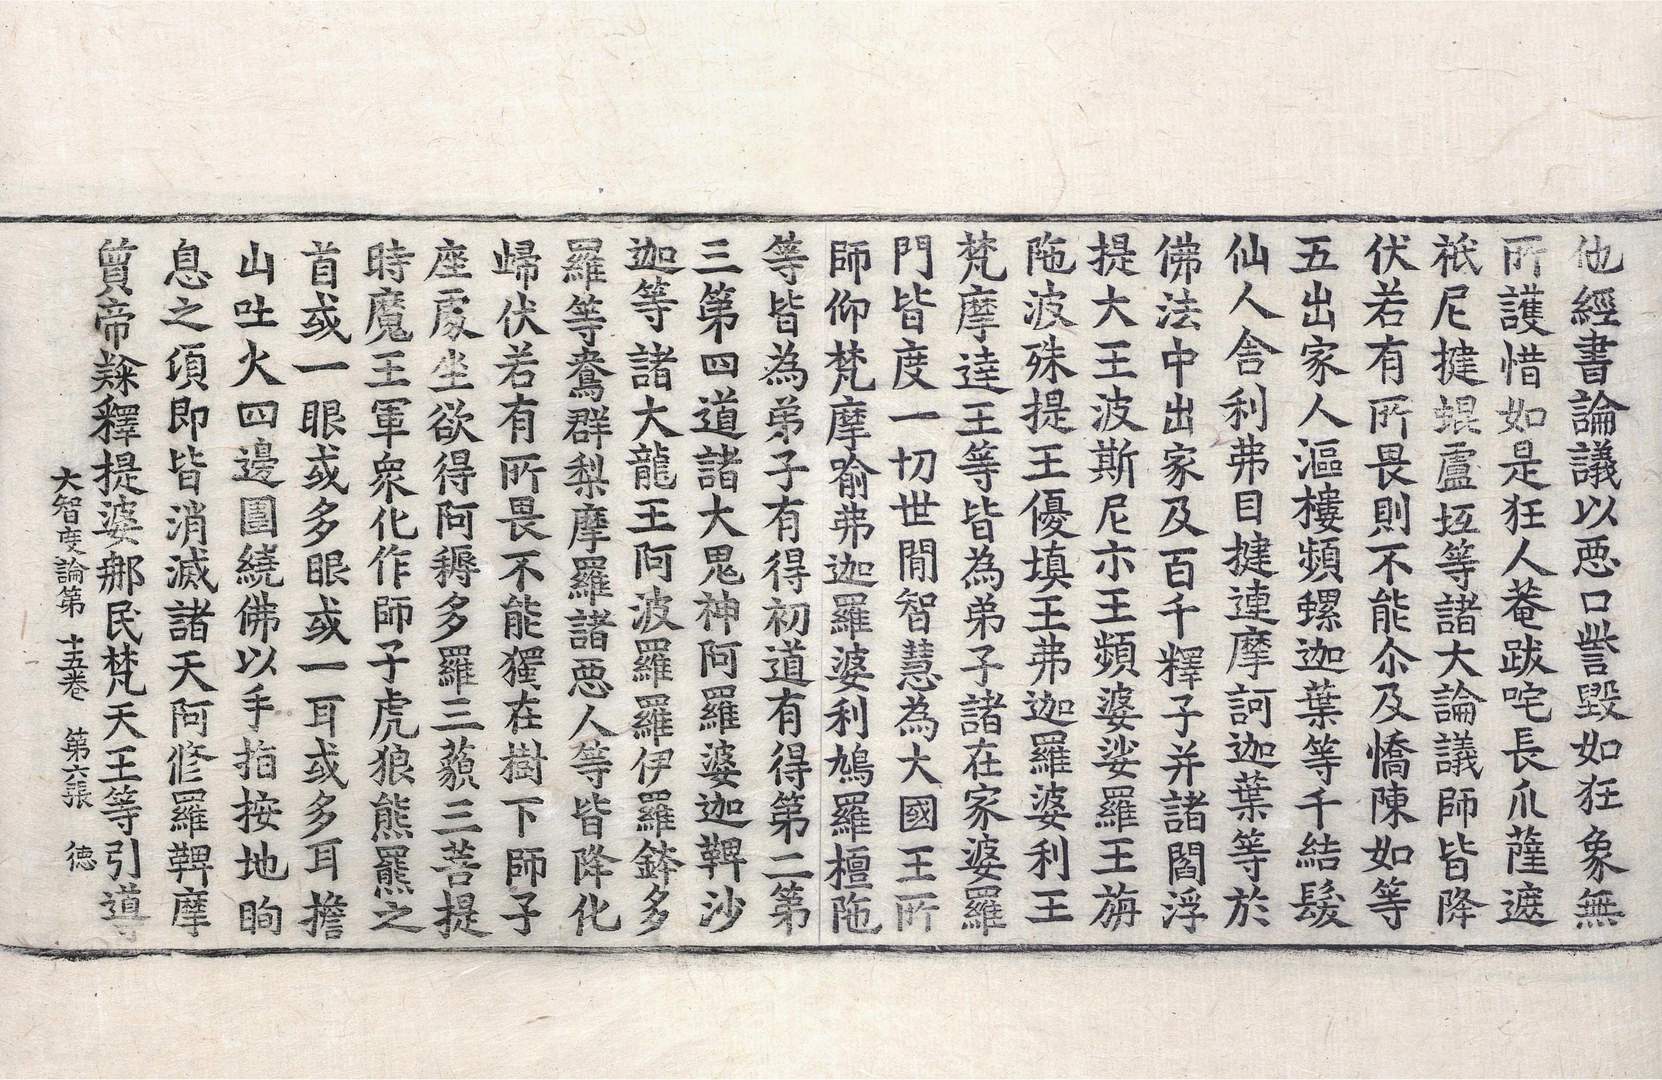 他經書論議以惡口訾毀如狂象無
所護惜如是狂人菴跋咤長爪薩遮
祇尼揵蜫盧坻等諸大論議師皆降
伏若有所畏則不能尒及憍陳如等
五出家人漚樓頻螺迦葉等千結髮
仙人舍利弗目揵連摩訶迦葉等於
佛法中出家及百千釋子并諸閻浮
提大王波斯尼示王頻婆娑羅王旃
陁波殊提王優填王弗迦羅婆利王
梵摩達王等皆為弟子諸在家婆羅
門皆度一切世間智慧為大國王所
師仰梵摩喻弗迦羅婆利鳩羅檀陁
等皆為弟子有得初道有得第二第
三第四道諸大鬼神阿羅婆迦鞞沙
迦等諸大龍王阿波羅羅伊羅鉢多
羅等鴦群梨摩羅諸惡人等皆降化
歸伏若有所畏不能獨在樹下師子
座處坐欲得阿耨多羅三藐三菩提
時魔王軍衆化作師子虎狼熊羆之
首或一眼或多眼或一耳或多耳擔
山吐火四邊圍繞佛以手指按地眴
息之須即皆消滅諸天阿修羅鞞摩
質帝𨽻釋提婆那民梵天王等引導
大智度論第二十五卷 第六張 德